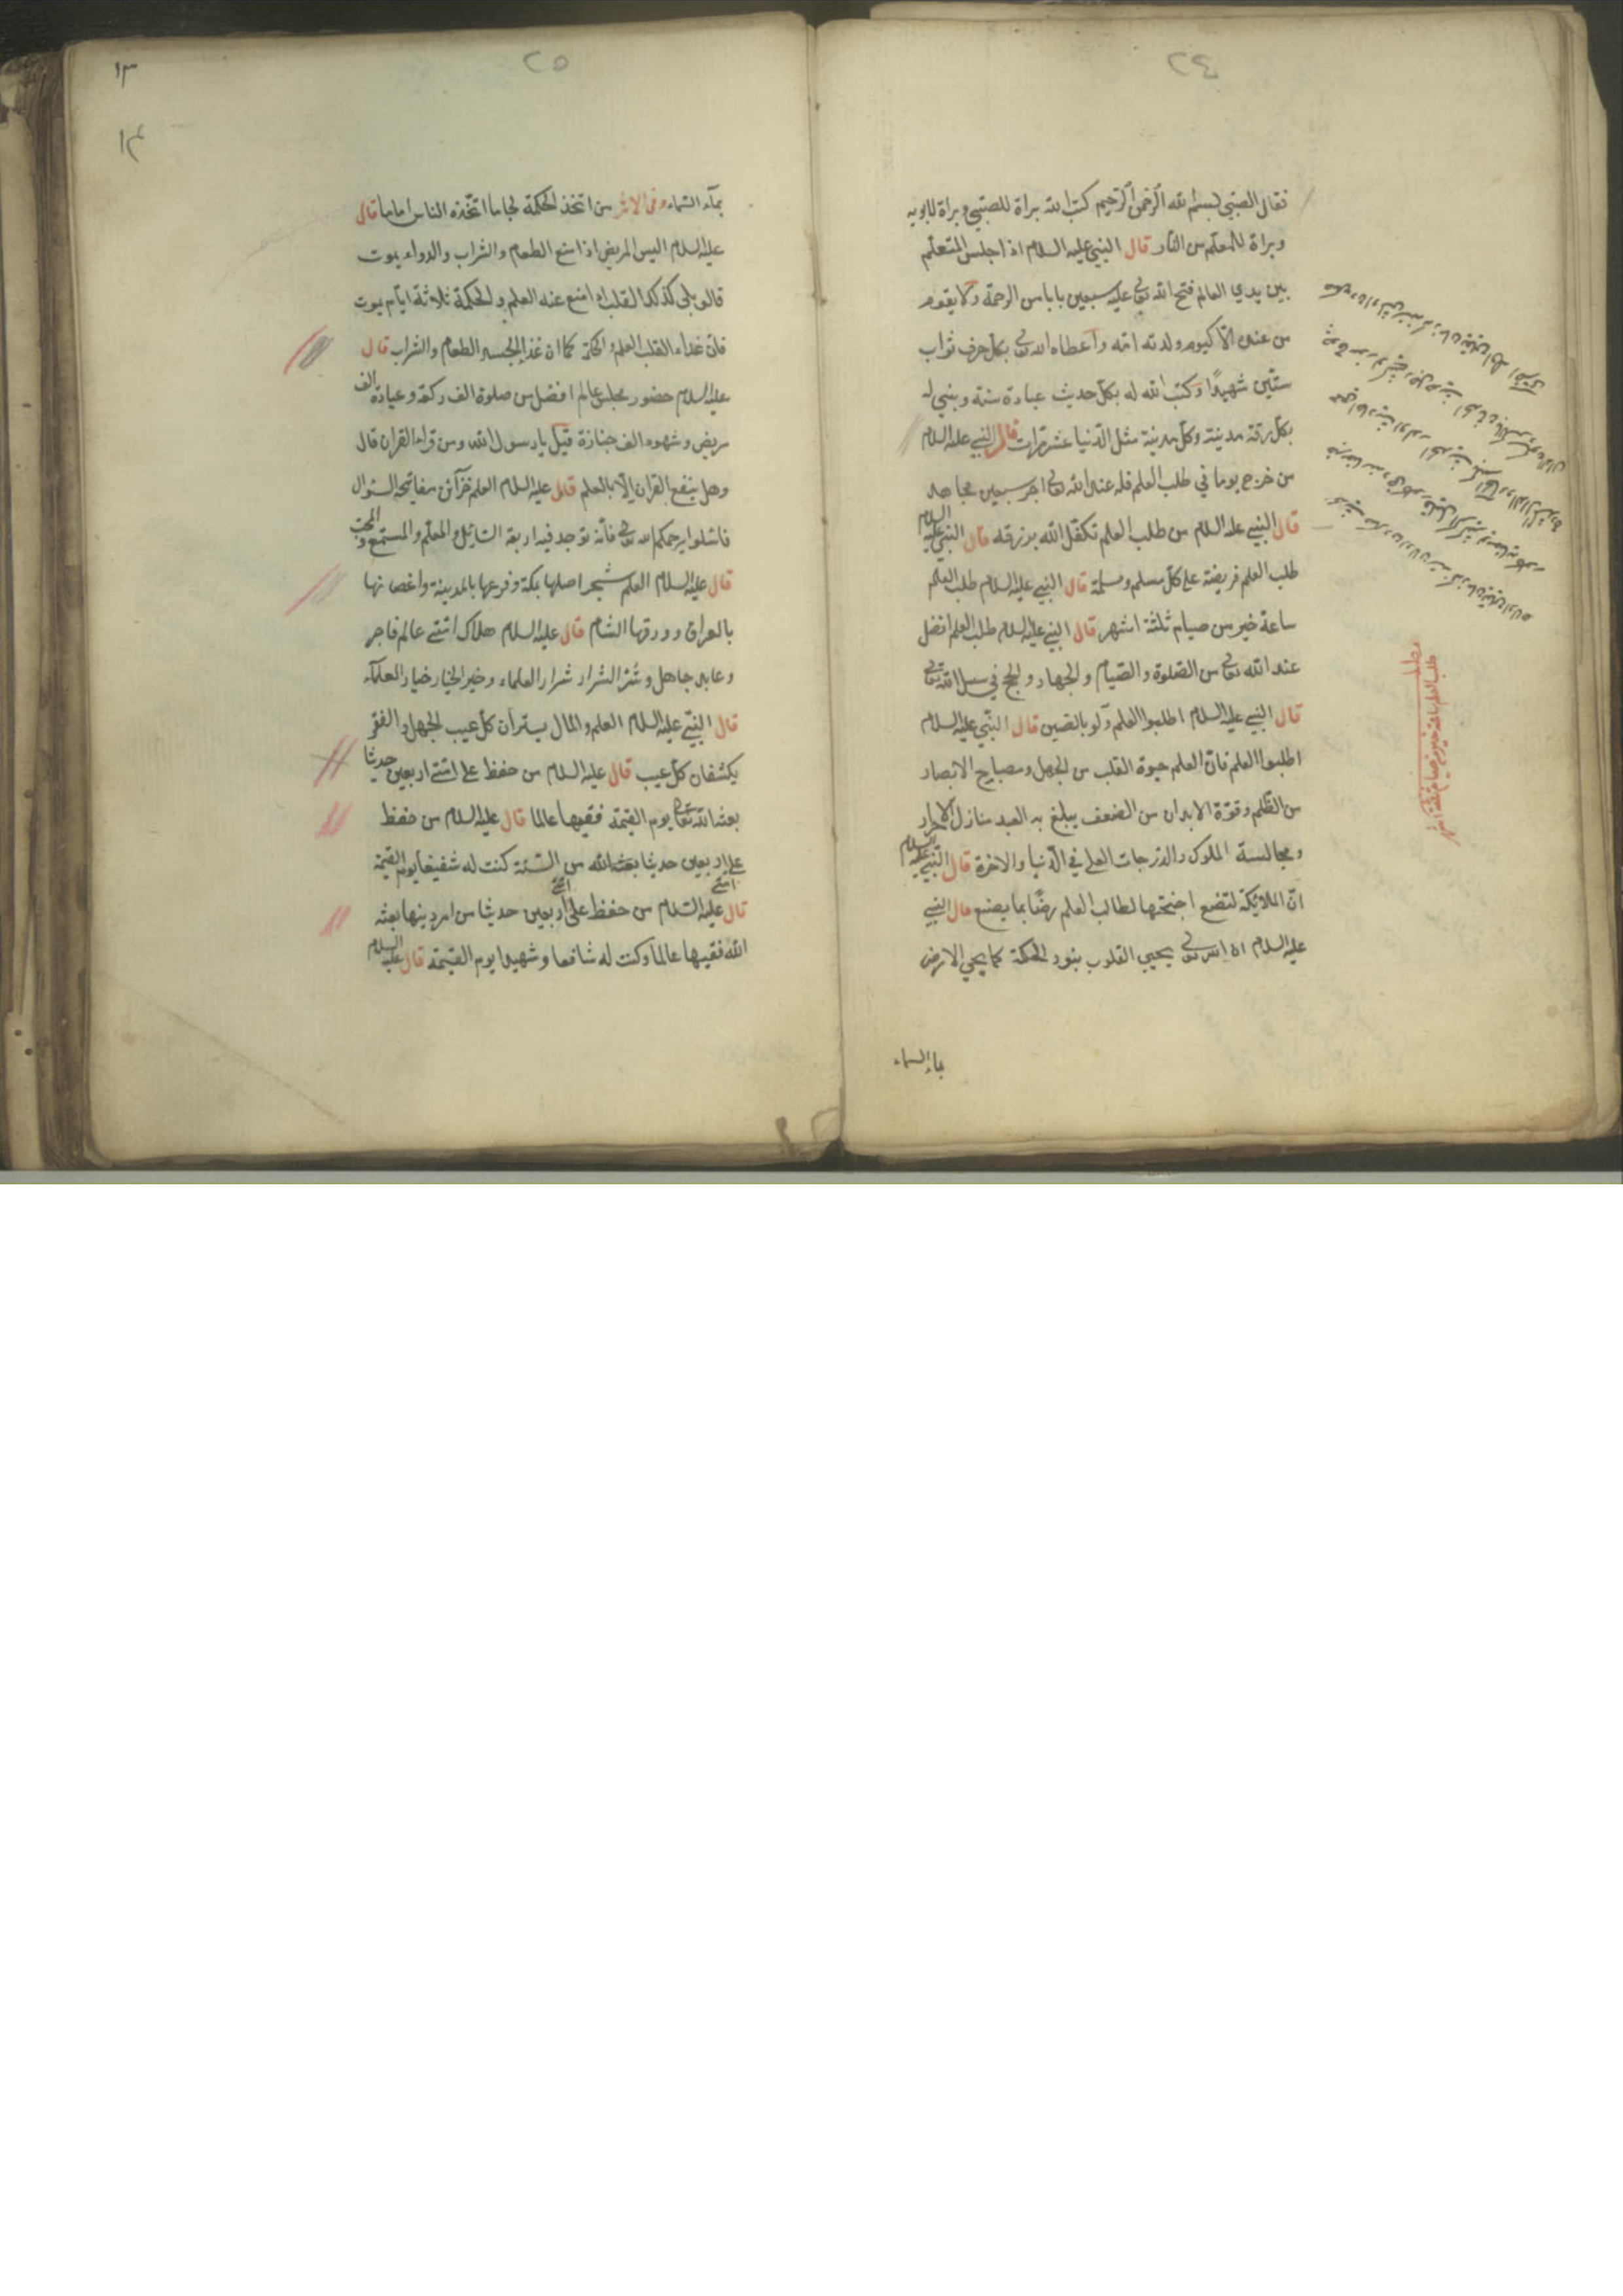 ٢٤
فقال الصبي بسم الله الرحمن الرحيم كتب الله براة للصبي وبراة لابويه
وبراة للمعلم من النار قال النبي عليه السلام اذا جلس المتعلم
بين يدي العالم فتح الله تعالى عليه سبعين بابا من الرحمة ولا يقوم
من عنده الا كيوم ولدته امه واعطاه الله تعالى بكل حرف ثواب
ستين شهيدًا وكتب الله له بكل حديث عبادة سنة ويبنى له
بكل ورقة مدينة وكل مدينة مثل الدنيا عشر مرات قال النبي عليه السلام
من خرج يوما في طلب العلم فله عند الله تعالى اجر سبعين مجاهد
قال النبي عليه السلام من طلب العلم تكفل الله برزقه قال النبي عليه السلام
طلب العلم فريضة على كل مسلم ومسلمة قال النبي عليه السلام طلب العلم
ساعة خير من صيام ثلثة اشهر قال النبي عليه السلام طلب العلم افضل
عند الله تعالى من الصلوة والصيام والجهاد والحج في سبيل الله تعالى
قال النبي عليه السلام اطلبوا العلم ولو بالصين قال النبي عليه السلام
اطلبوا العلم فان العلم حيوة القلب من الجهل ومصباح الابصار
من الظلم وقوة الابدان من الضعف يبلغ به العبد منازل الاحرار
ومجالسة الملوك والدرجات العلى في الدنيا والاخرة قال النبي عليه السلام
ان الملائكة لتضع اجنحتها لطالب العلم رضًا بما يصنع قال النبي
عليه السلام ان الله تعالى يحيي القلوب بنور الحكمة كما يحي الارض
بماء السماء
مطلب
طلب العلم ساعة خير من صيام ثلثة اشهر
٢٥
١٣
١٣
بمآء السماء وفى الاثر من اتخذ الحكمة لجاما اتخذه الناس اماما قال
عليه السلام اليس المريض اذا منع الطعام والشراب والدواء يموت
قالو بلى كذلك القلب اذا منع عنه العلم والحكمة ثلاثة ايام يموت
فان غذاء القلب العلم والحكمة كما ان غذا الجسد الطعام والشراب قال
عليه السلام حضور مجلس عالم افضل من صلوة الف ركعة وعيادة الف
مريض وشهود الف جنازة قيل يا رسول الله ومن قراءة القران قال
وهل ينفع القران الا بالعلم قال عليه السلام العلم خزآئن مفاتيحه السؤال
فاسئلوا يرحمكم الله تعالى فانه توجد فيه اربعة السائل والمعلم والمستمع والمحب
قال عليه السلام العلم شجر اصلها بمكة وفرعها بالمدينة واغصانها
بالعراق وورقها الشام قال عليه السلام هلاك امتي عالم فاجر
وعابد جاهل وشر الشرار شرار العلماء وخير الخيار خيار العلمآء
قال النبي عليه السلام العلم والمال يستران كل عيب الجهل والفقر
يكشفان كل عيب قال عليه السلام من حفظ على امتي اربعين حديثا
بعثه الله تعالى يوم القيمة فقيها عالما قال عليه السلام من حفظ
على امتي اربعين حديثا بعثه الله من السنة كنت له شفيعا يوم القيمة
قال عليه السلام من حفظ على امتي اربعين حديثا من امر دينها بعثه
الله فقيها عالما وكنت له شافعا وشهيدا يوم القيمة قال عليه السلام